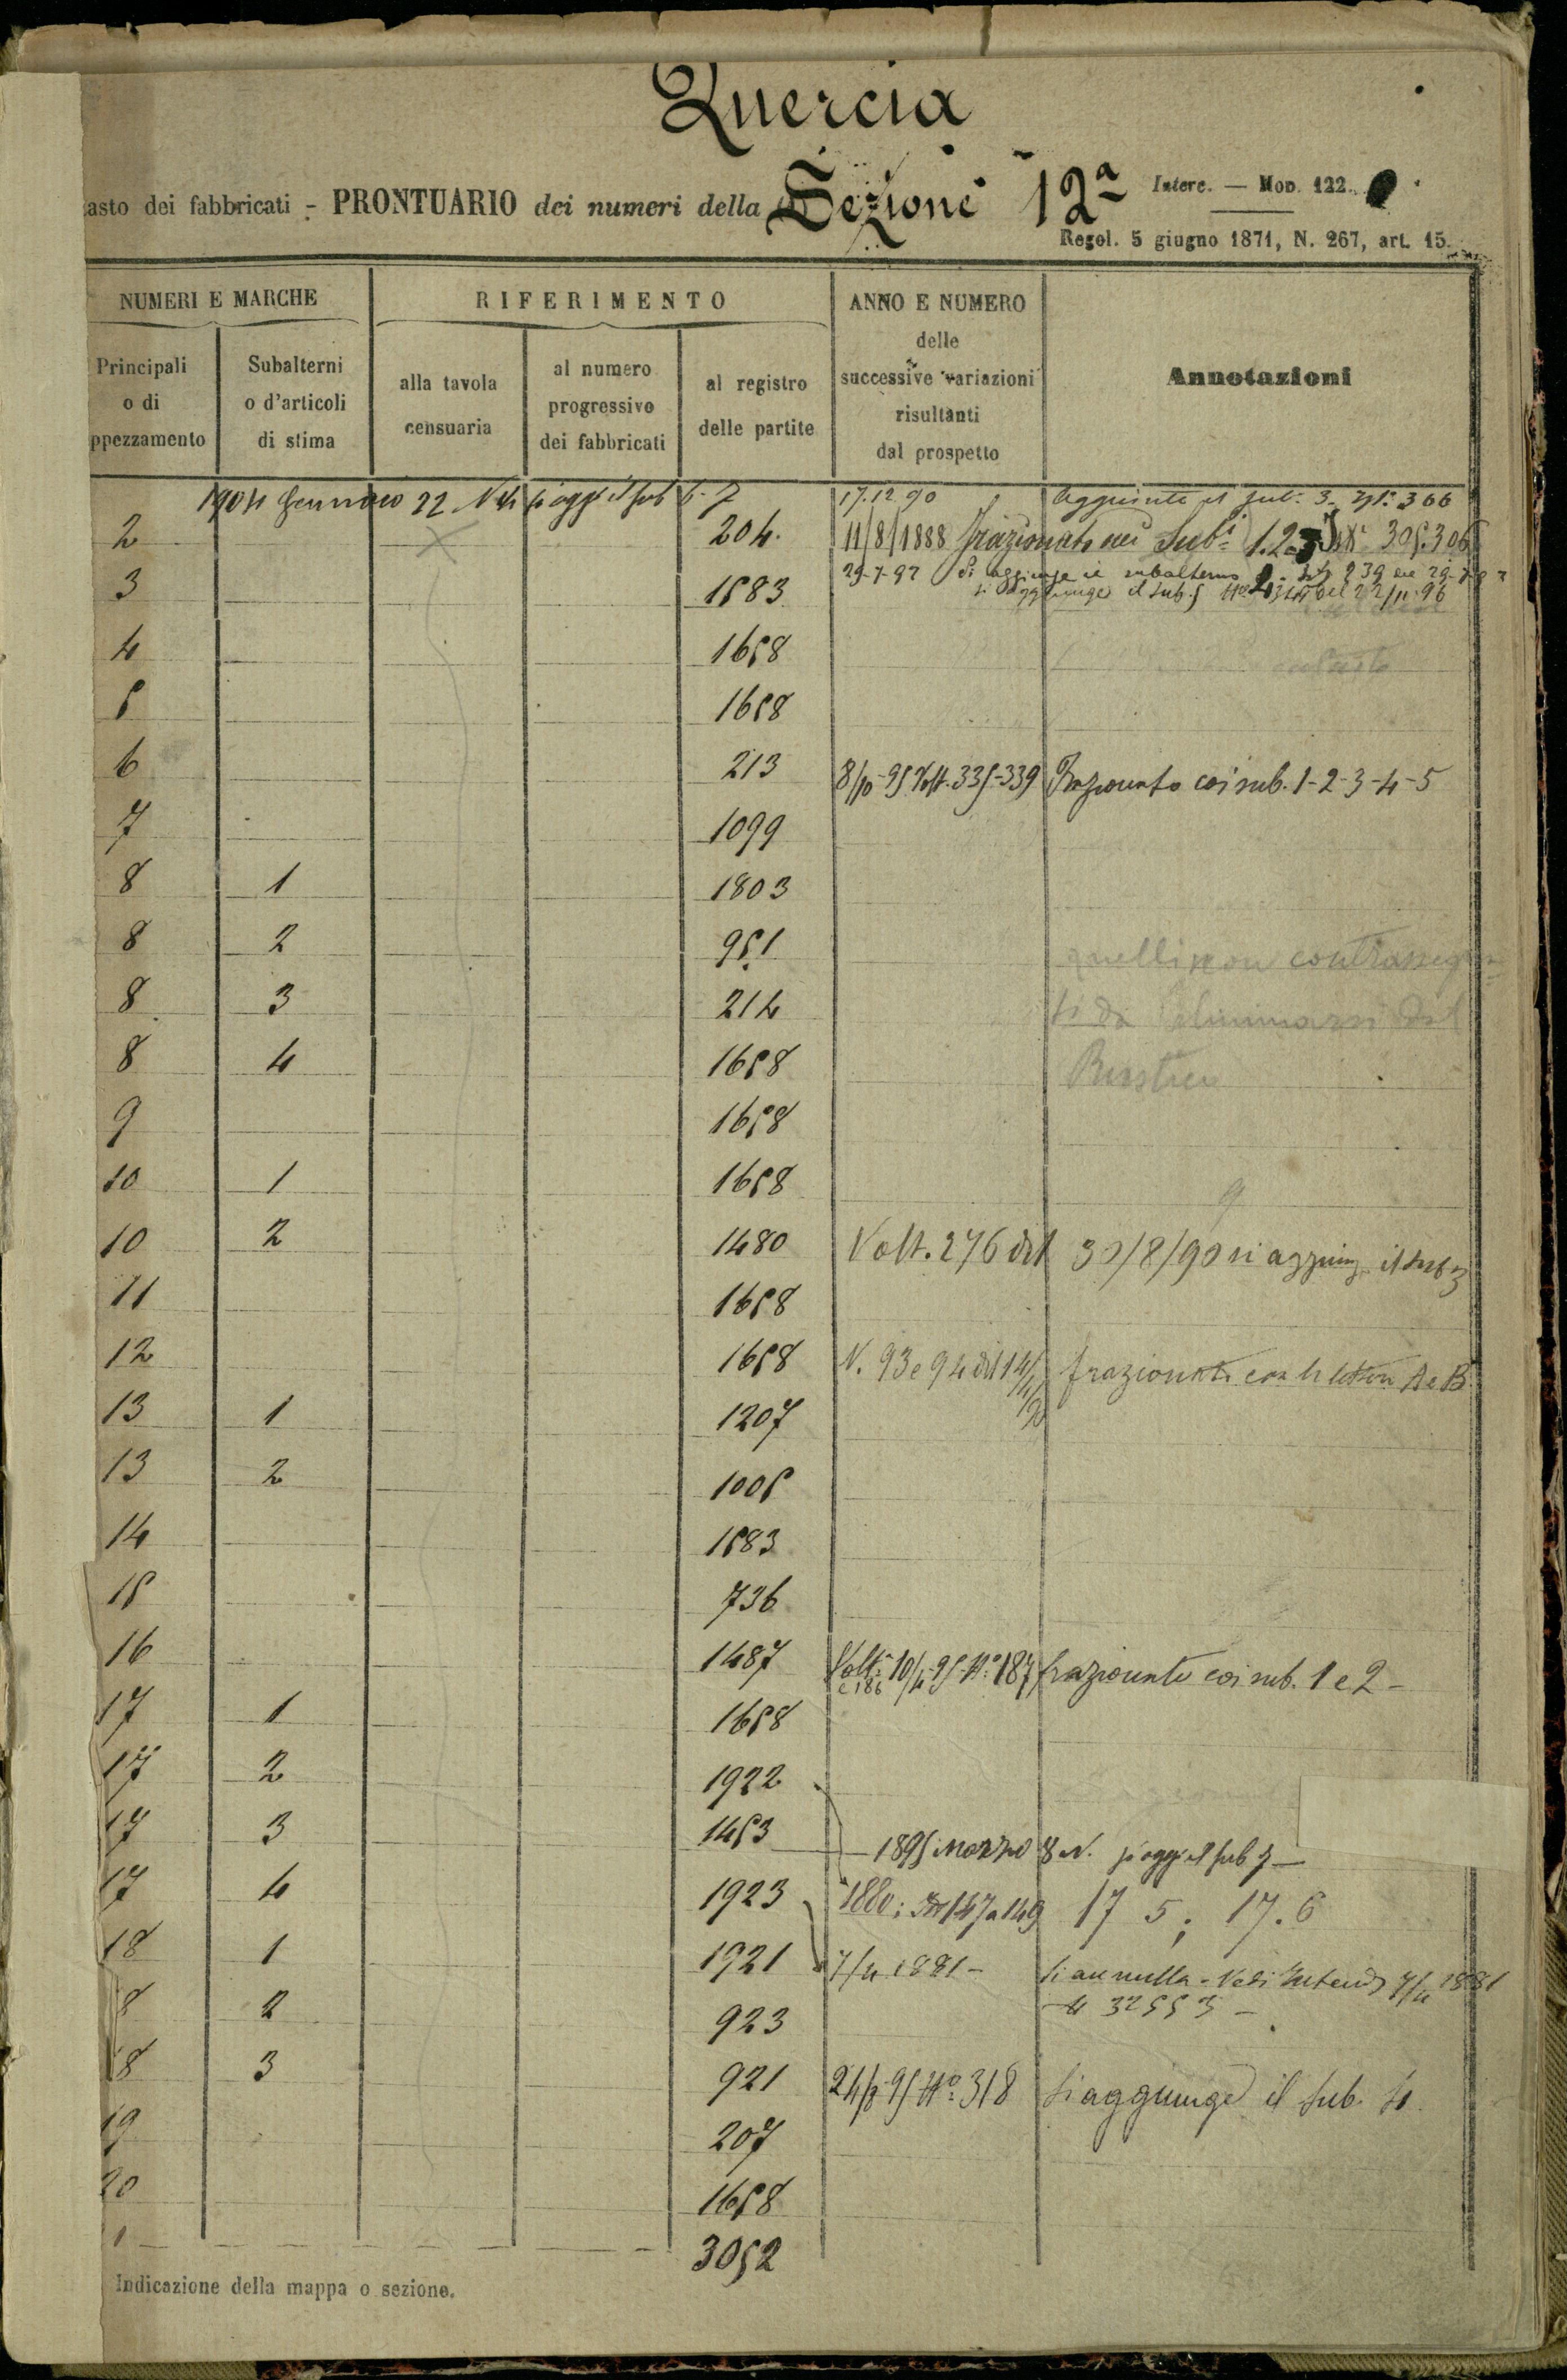 Quercia
asto dei fabbricati - PRONTUARIO dei numeri della Sezione 12ª
Interc. — Mod. 122.
Regol. 5 giugno 1871, N. 267, art. 15.
NUMERI E MARCHE RIFERIMENTO ANNO E NUMERO delle successive variazioni risultanti dal prospetto Annotazioni
Principali o di ppezzamento Subalterni o d'articoli di stima alla tavola censuaria al numero progressivo dei fabbricati al registro delle partite
1904 Gennaio 22 si agg. il sub 6-7 17.12 90 aggiunto il sub. 3 366
2 204 11/8/1888 frazionato nei Subi 1.2 305.306
29-7-92 Si aggiunge il subalterno 239
3 1583 si aggiunge il sub. 5 del 22/11.96
4 1658
5 1658
6 213 8/10-95 Volt. 335-339 Frazionato coi sub. 1-2-3-4-5
7 1099
8 1 1803
8 2 951 quelli non contrassegna
8 3 214 ti da eliminarsi dal
8 4 1658
9 1658
10 1 1658
10 2 1480 Volt. 276 del 30/8/90 si aggiung. il sub 3
11 1658
12 1658 N. 93 e 94 del 14/ frazionato con le lettere A e B
13 1 1207
13 2 1005
14 1583
15 736
16 1487 Volt. 10/4-95 No. 187 frazionato coi sub. 1 e 2 -
e 186
17 1 1658
17 2 1922
17 3 1453
1895 Marzo 8 N. si agg. il sub 7 —
17 4 1923 1880: 147 a 149 17 5; 17.6
18 1 1921 7/4 1881 - Si annulla - Vedi Intend. 7/4 1881
32553 -
8 2 923
18 3 921 24/8-95 No. 318 Si aggiunge il sub. 4.
19 207
20 1658
1 3052
Indicazione della mappa o sezione.